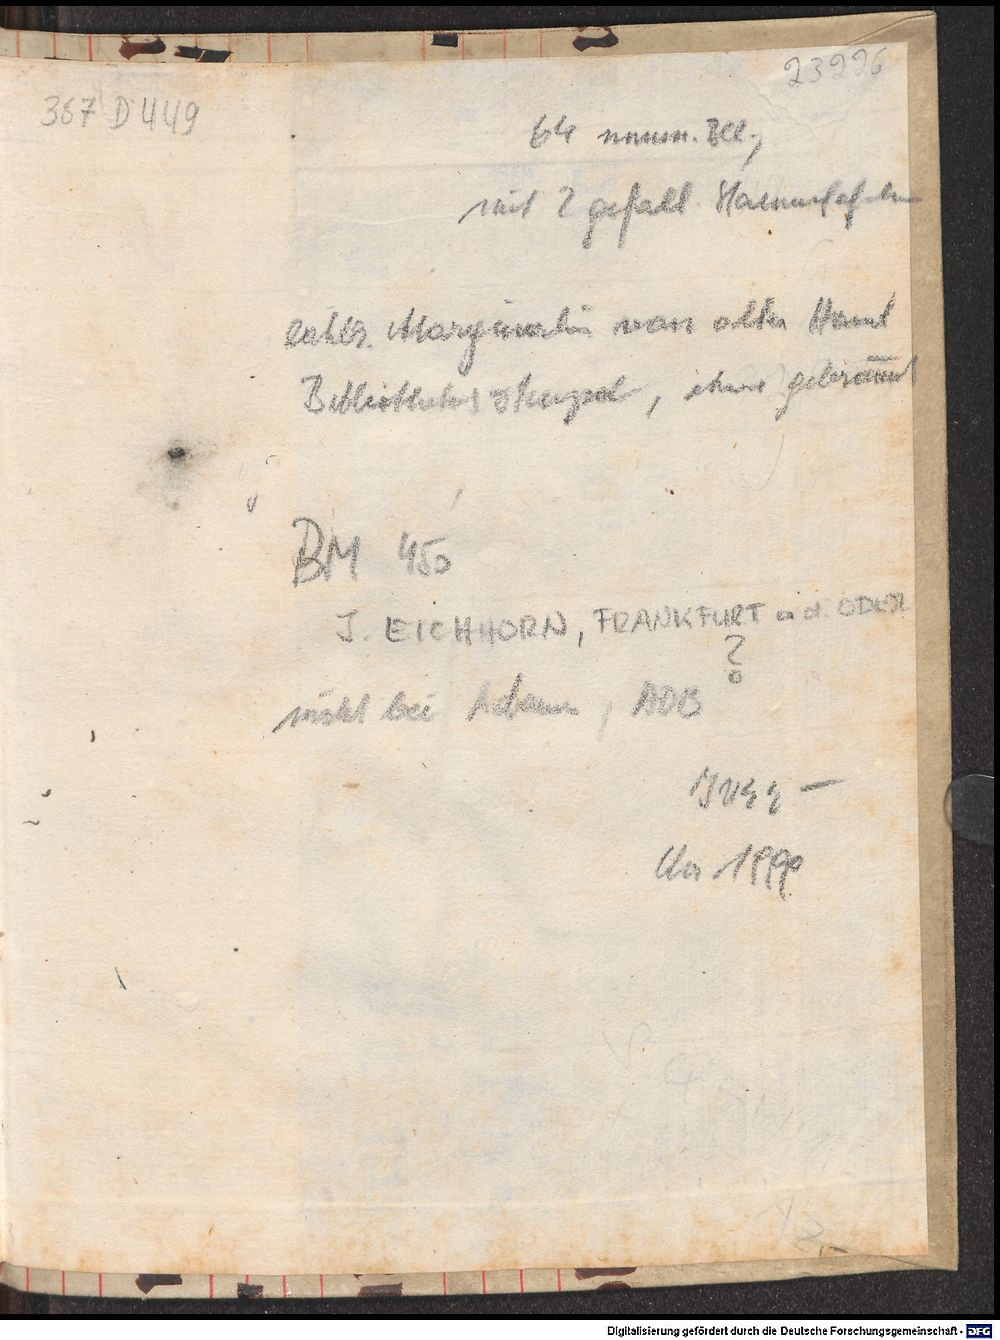 23226
367 D 449
64 numm. Bll,
mit 2 gefalt. Stammtafeln
zahlr. Marginalien von alter Hand
Bibliotheksstempel, etwas gebräunt
BM 450
J. EICHHORN, FRANKFURT a. d. ODER
?
nicht bei Adams, ADB
1990
Digitalisierung gefördert durch die Deutsche Forschungsgemeinschaft - DFG